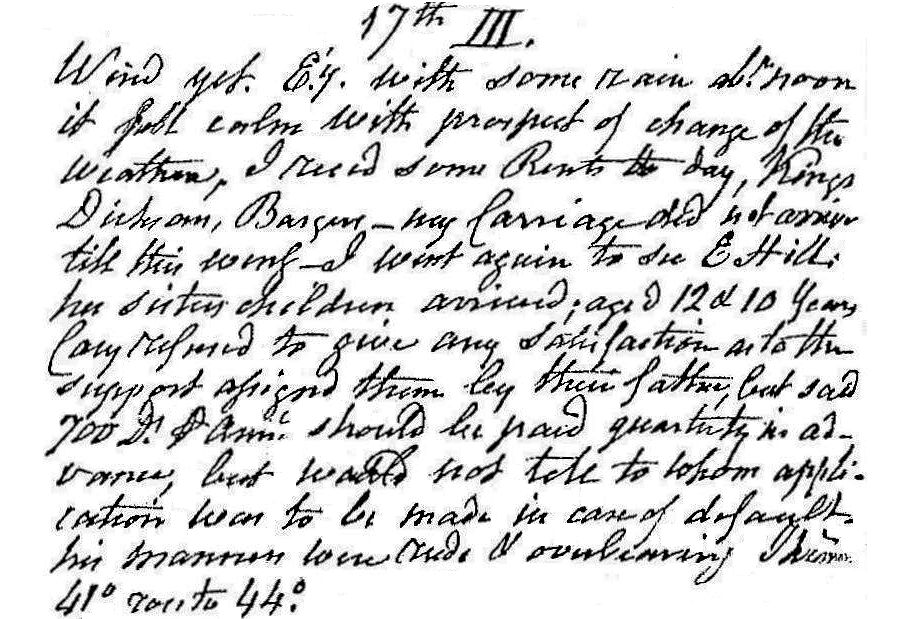 17th III.
Wind yet. E'y. with some rain abt noon
it fell calm with prospect of change of the
weather, I recd some Rents to day, Kings
Dickson, Bargers – my Carriage did not arrive
till this even'g – I went again to see E Hill.
her sisters children arrived; aged 12 & 10 Years
Cary refused to give any satisfaction as to the
support assigned them by their father, but said
700 Ds. P Annm. should be paid quarterly in ad-
vance, but would not tell to whom appli-
cation was to be made in case of default.
his manners were rude & overbearing Therm.
41° rose to 44°.